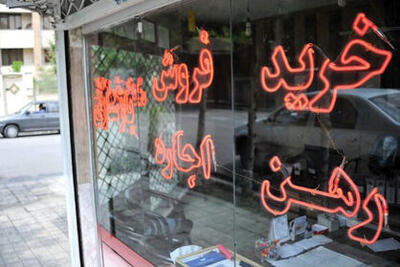 خرید
فروش
رهن
اجاره